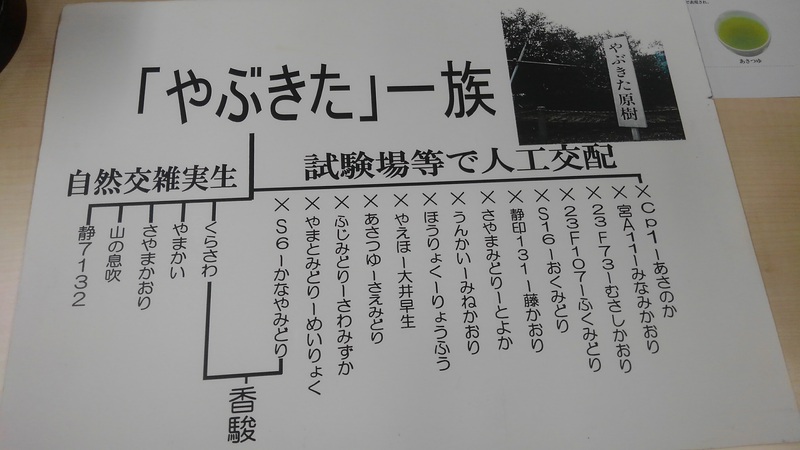 「やぶきた」一族
やぶきた原樹
あさつゆ
試験場等で人工交配
自然交雑実生
×Cp1ーあさのか
×宮A11ーみなみかおり
×23F73ーむさしかおり
×23F107ーふくみどり
×S16ーおくみどり
×静印131ー藤かおり
×さやまみどりーとよか
×うんかいーみねかおり
×ほうりょくーりょうふう
×やえほー大井早生
×あさつゆーさえみどり
×ふじみどりーさわみずか
×やまとみどりーめいりょく
×S6ーかなやみどり
くらさわ
やまかい
さやまかおり
山の息吹
静7132
香駿